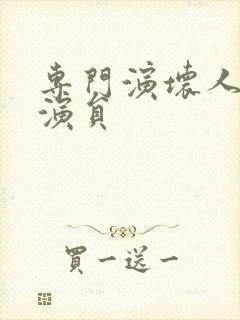 專門演壞人
演員
買一送一